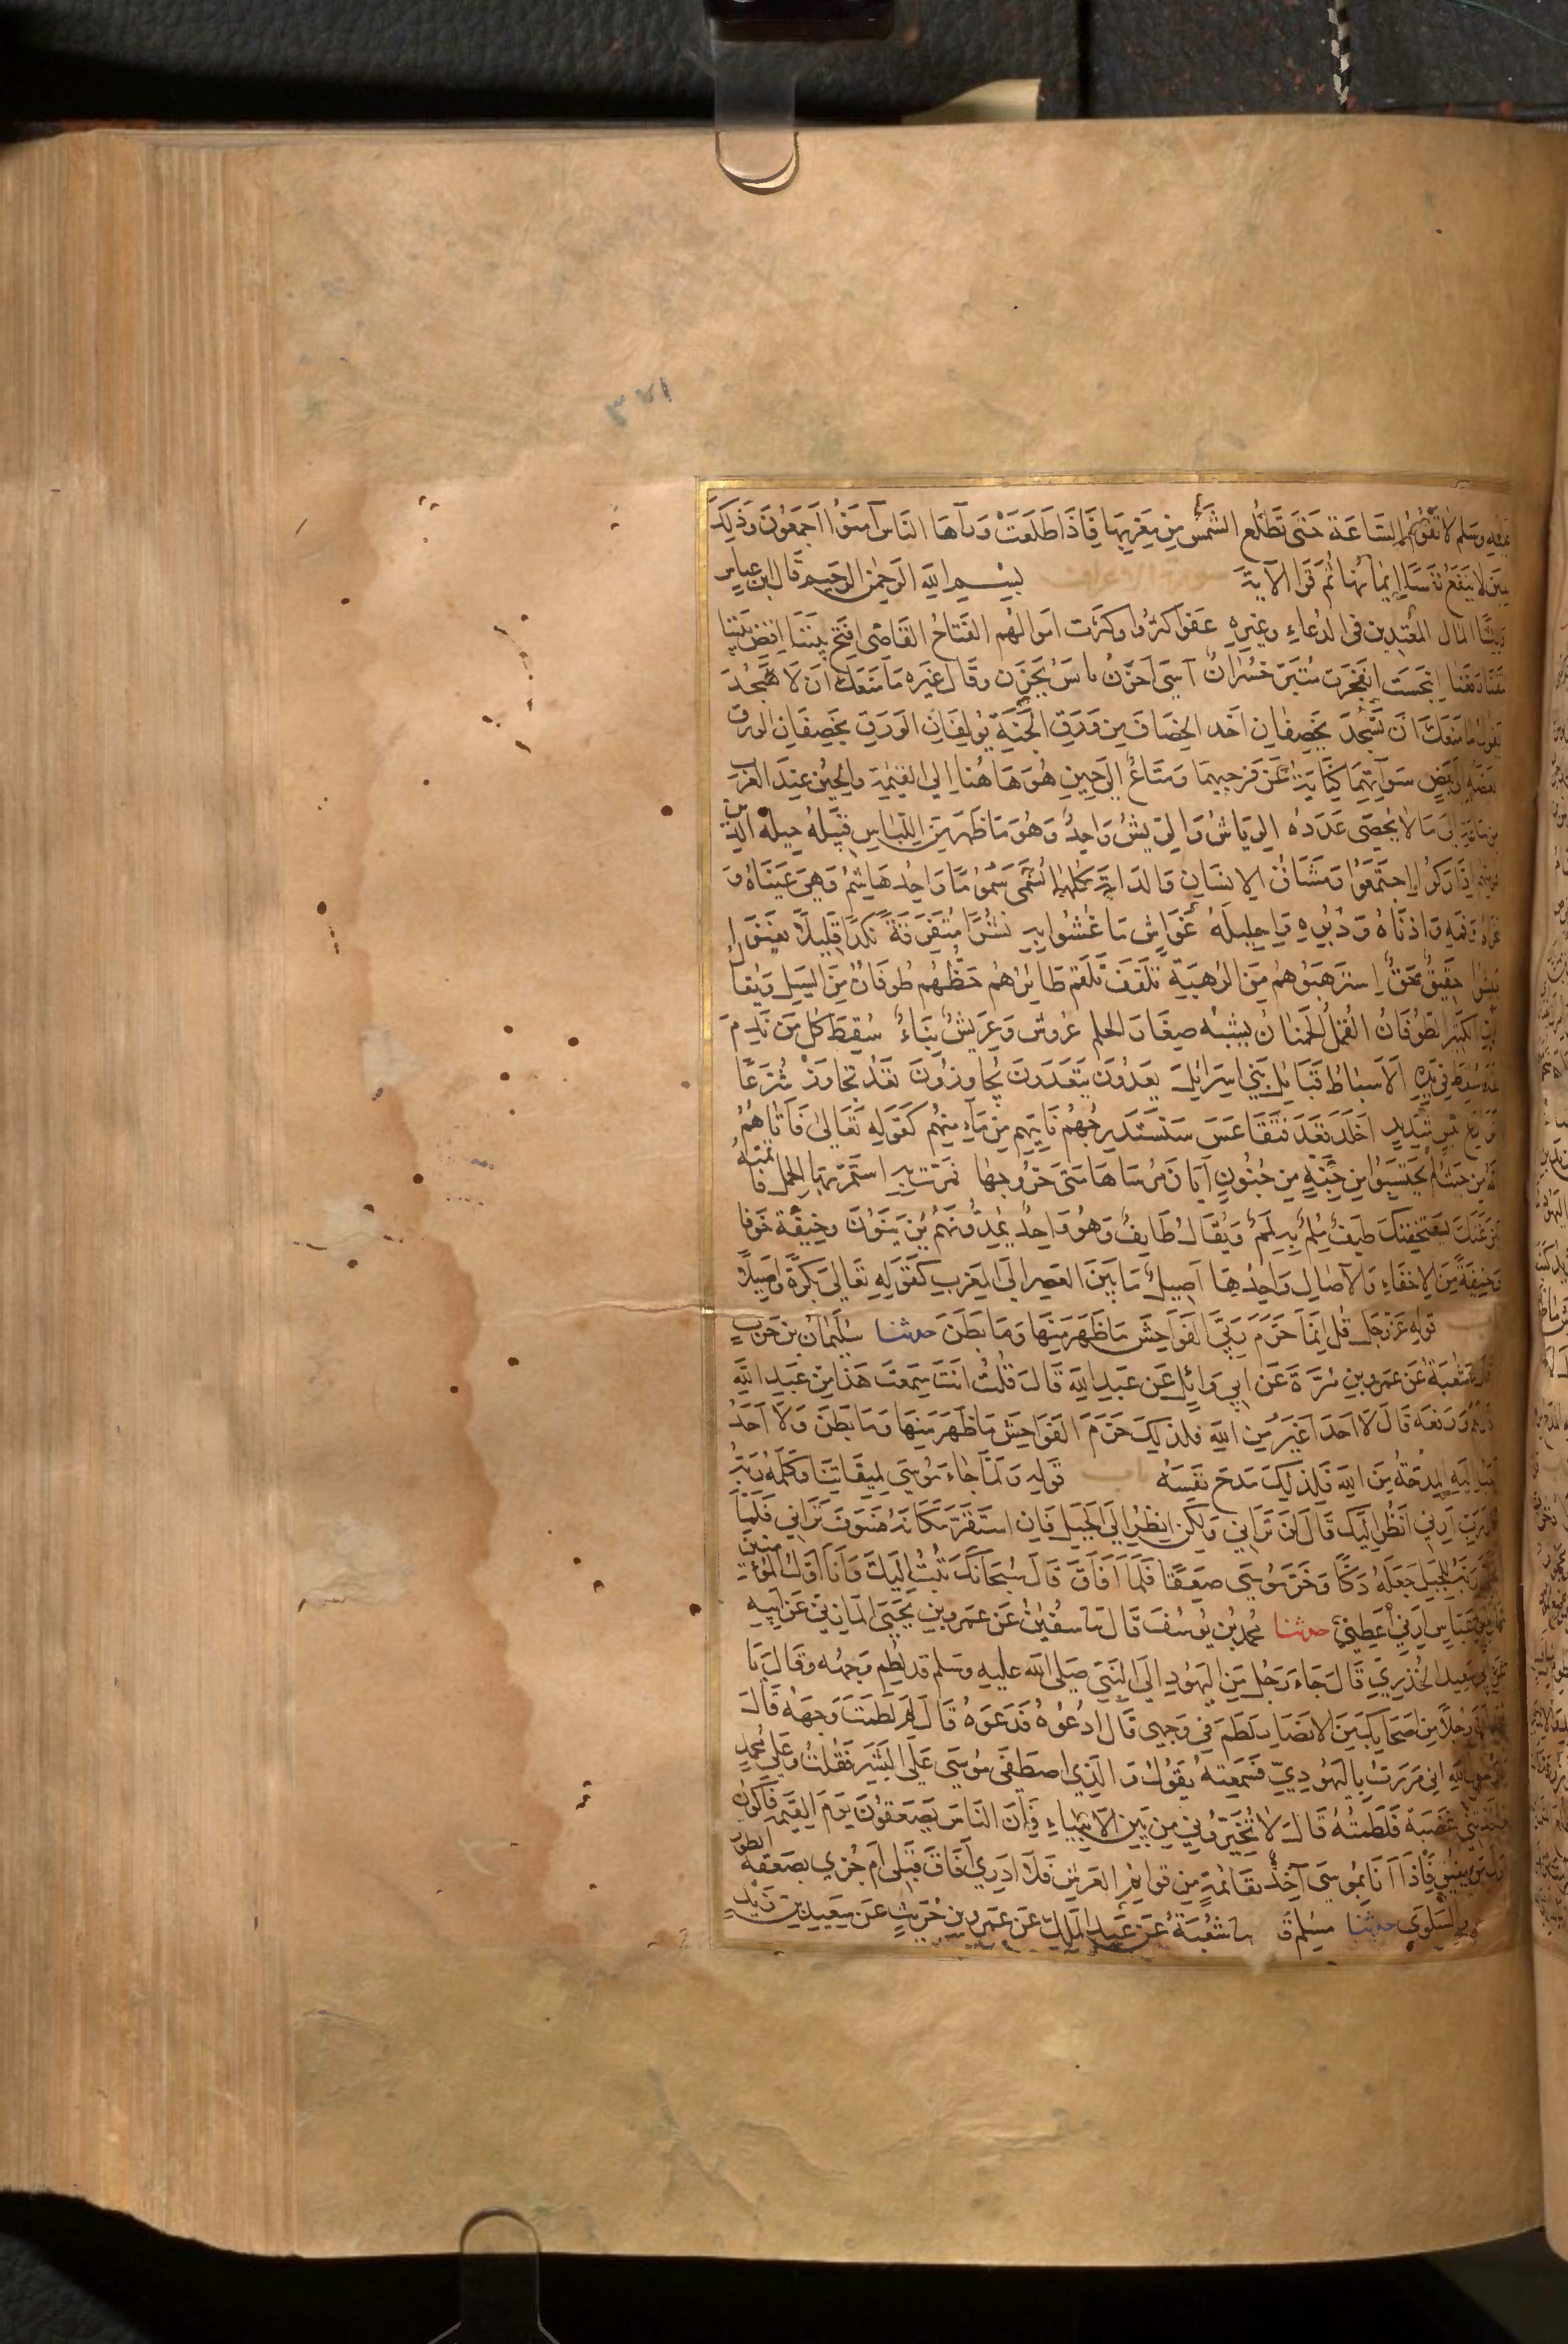 ۳۷۱
عليه وسلم لا تقوم الساعة حتى تطلع الشمس من مغربها فاذا طلعت ورآها الناس آمنوا اجمعون وذلك
حين لا ينفع نفسا ايمانها ثم قرا الآية سورة الاعراف بسم الله الرحمن الرحيم قال ابن عباس
وريشا المال المعتدين في الدعاء وغيره عفوا كثروا وكثرت اموالهم الفتاح القاضي افتح بيننا اقض بيننا
نتقنا رفعنا انبجست انفجرت متبر خسران آسى احزن تاس تحزن وقال غيره ما منعك ان لا تسجد
يقول ما منعك ان تسجد يخصفان اخذ الخصاف من ورق الجنة يولفان الورق يخصفان الورق
بعضه الى بعض سوآتهما كناية عن فرجيهما ومتاع الى حين هو هاهنا الى القيمة والحين عند العرب
من ساعة الى ما لا يحصى عدده الرياش والريش واحد وهو ما ظهر من اللباس قبيله جيله الذي
هو منهم اداركوا اجتمعوا ومشاق الانسان والدابة كلها تسمى سموما واحدها سم وهي عيناه و
منخراه وفمه واذناه ودبره واحليله غواش ما غشوا به نشرا متفرقة نكدا قليلا يغنوا
يعيشوا حقيق حق استرهبوهم من الرهبة تلقف تلقم طائرهم حظهم طوفان من السيل ويقال
للموت الكثير الطوفان القمل الحمنان يشبه صغار الحلم عروش وعريش بناء سقط كل من ندم
فقد سقط في يده الاسباط قبائل بني اسرائيل يعدون يتعدون يجاوزون تعد تجاوز شرعا
شوارع بئيس شديد اخلد قعد وتقاعس سنستدرجهم ناتيهم من مامنهم كقوله تعالى فآتاهم
الله من حيث لم يحتسبوا من جنة من جنون ايان مرساها متى خروجها فمرت به استمر بها الحمل فاتمته
ينزغنك يستخفنك طيف ملم به لمم ويقال طايف وهو واحد يمدونهم يزينون وخيفة خوفا
وخفية من الاخفاء والآصال واحدها اصيل ما بين العصر الى المغرب كقوله تعالى بكرة واصيلا
باب قوله عز وجل قل انما حرم ربي الفواحش ما ظهر منها وما بطن حدثنا سليمان بن حرب
قال نا شعبة عن عمرو بن مرة عن ابي وائل عن عبد الله قال قلت انت سمعت هذا من عبد الله
قال نعم ورفعه قال لا احد اغير من الله فلذلك حرم الفواحش ما ظهر منها وما بطن ولا احد
احب اليه المدحة من الله فلذلك مدح نفسه باب قوله ولما جاء موسى لميقاتنا وكلمه ربه
قال رب ارني انظر اليك قال لن تراني ولكن انظر الى الجبل فان استقر مكانه فسوف تراني فلما
تجلى ربه للجبل جعله دكا وخر موسى صعقا فلما افاق قال سبحانك تبت اليك وانا اول المؤمنين
قال ابن عباس ارني اعطني حدثنا محمد بن يوسف قال نا سفين عن عمرو بن يحيى المازني عن ابيه
عن ابي سعيد الخدري قال جاء رجل من اليهود الى النبي صلى الله عليه وسلم قد لطم وجهه وقال يا
محمد ان رجلا من اصحابك من الانصار لطم في وجهي قال ادعوه فدعوه قال لم لطمت وجهه قال
يا رسول الله اني مررت باليهودي فسمعته يقول والذي اصطفى موسى على البشر فقلت وعلى محمد
فاخذتني غضبة فلطمته قال لا تخيروني من بين الانبياء فان الناس يصعقون يوم القيمة فاكون
اول من يفيق فاذا انا بموسى آخذ بقائمة من قوايم العرش فلا ادري افاق قبلي ام جزي بصعقة الطور
والسلوى حدثنا مسلم ق نا شعبة عن عبد الملك عن عمرو بن حريث عن سعيد بن زيد